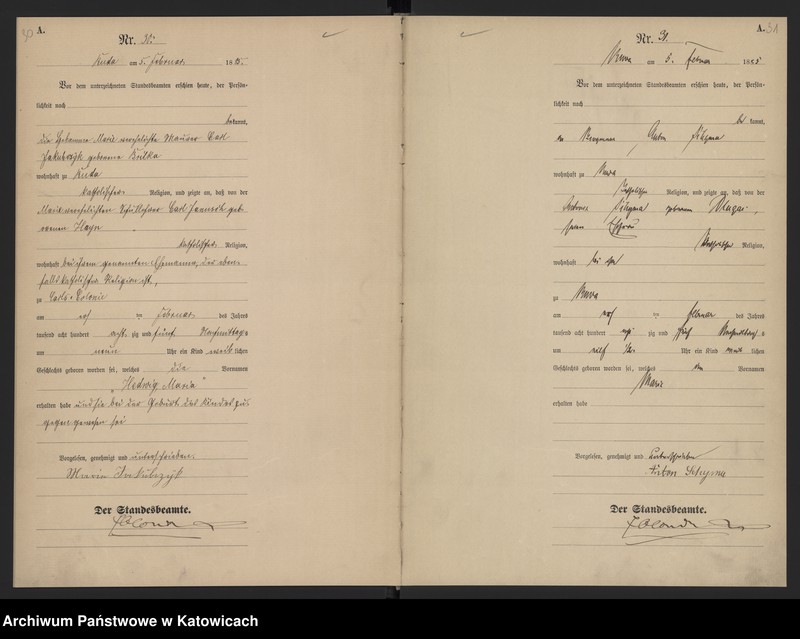 30
A.
Nr. 30.
Ruda am 5. Februar 1885.
Vor dem unterzeichneten Standesbeamten erschien heute, der Persön-
lichkeit nach
bekannt,
die Hebamme Marie verehelichte Maurer Carl
Jakubczyk geborene Kulka
wohnhaft zu Ruda
katholischer Religion, und zeigte an, daß von der
Marie verehelichten Schullehrer Carl geb
renen Hayn
katholischer Religion,
wohnhaft bei ihrem genannten Ehemanne, der eben-
falls katholischer Religion ist,
zu Carls-Colonie
am Februar des Jahres
tausend acht hundert acht zig und fünf Nachmittags
um neun Uhr ein Kind weiblichen
Geschlechts geboren worden sei, welches die Vornamen
„Hedwig Maria“
erhalten habe und sie bei der Geburt des Kindes zu-
gegen gewesen sei
Vorgelesen, genehmigt und unterschrieben.
Maria Jakubczyk
Der Standesbeamte.
A. 31
Nr. 31.
Ruda am 5. Februar 1885
Vor dem unterzeichneten Standesbeamten erschien heute, der Persön-
lichkeit nach
bekannt,
der Bergmann Anton
wohnhaft zu Ruda
katholischer Religion, und zeigte an, daß von der
geborenen
seiner Ehefrau
katholischer Religion,
wohnhaft bei ihm
zu Ruda
am Februar des Jahres
tausend acht hundert acht zig und fünf Nachmittags
um Uhr ein Kind weiblichen
Geschlechts geboren worden sei, welches den Vornamen
Marie
erhalten habe
Vorgelesen, genehmigt und unterschrieben
Anton
Der Standesbeamte.
Archiwum Państwowe w Katowicach